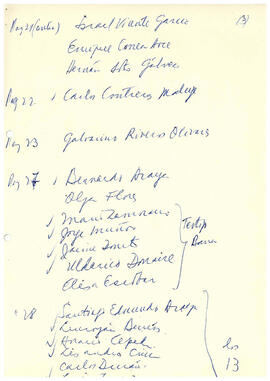 Pag 21 (contin) Israel Vicente Garcia (3)
Enrique Correa Arce
Hernán Soto Gálvez
Pag 22 Carlos Contreras Maluje
Pag 23 Galvarino Rivera Olivares
Pag 27 Bernardo Araya
Olga Flores
Mario Zamorano
Jorge Muñoz
Jaime Donato
Uldarico Donaire
Elisa Escobar
Testigo
28 Santiago Edmundo Araya
Horacio Cepeda
Lisandro Cruz
Carlos Durán
los
13